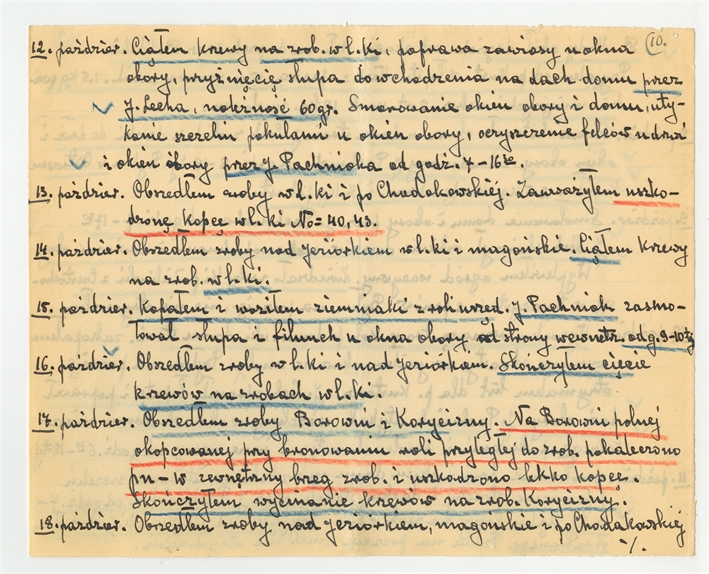 10.
12. paździer. Ciąłem krewy na zrob. w l.ki, poprawa zawiasy u okna
obory, przyżnięcie słupa do wchodzenia na dach domu przez
J. Lecha, należność 60 gr. Smarowanie okien obory i domu, uty-
kanie szczelin pakułami u okien obory, oczyszczenie felców u drzwi
i okien obory przez J. Pachnioka od godz. 7 - 16³⁰
13. paździer. Obszedłem zroby w l.ki i po Chodakowskiéj. Zauważyłem uszko-
dronę kopce w l.ki No= 40, 43.
14. paździer. Obszedłem zroby nad Jeziorkiem w l.ki i magońskie. Ciąłem krewy
na zrob. w l.ki.
15. paździer. Kopałem i woziłem ziemniaki z roli urzęd. J. Pachniok zasmo-
łował słupa i filunek u okna obory od strony wewnętrz. od g. 9-10tej
16. paździer. Obszedłem zroby w l.ki i nad Jeziorkiem. Skończyłem cięcie
krewów na zrobach w l.ki.
17. paździer. Obszedłem zroby Borowin i Korycizny. Na Borowin polnej
okopcowanej przy bronowaniu roli przyległej do zrob. pokaleczono
pn-w zewnętrzny brzeg zrob. i uszkodzono lekko kopce.
Skończyłem wycinanie krewów na zrob. Korycizny.
18. paździer. Obszedłem zroby nad Jeziorkiem, magońskie i po Chodakowskiéj
./.